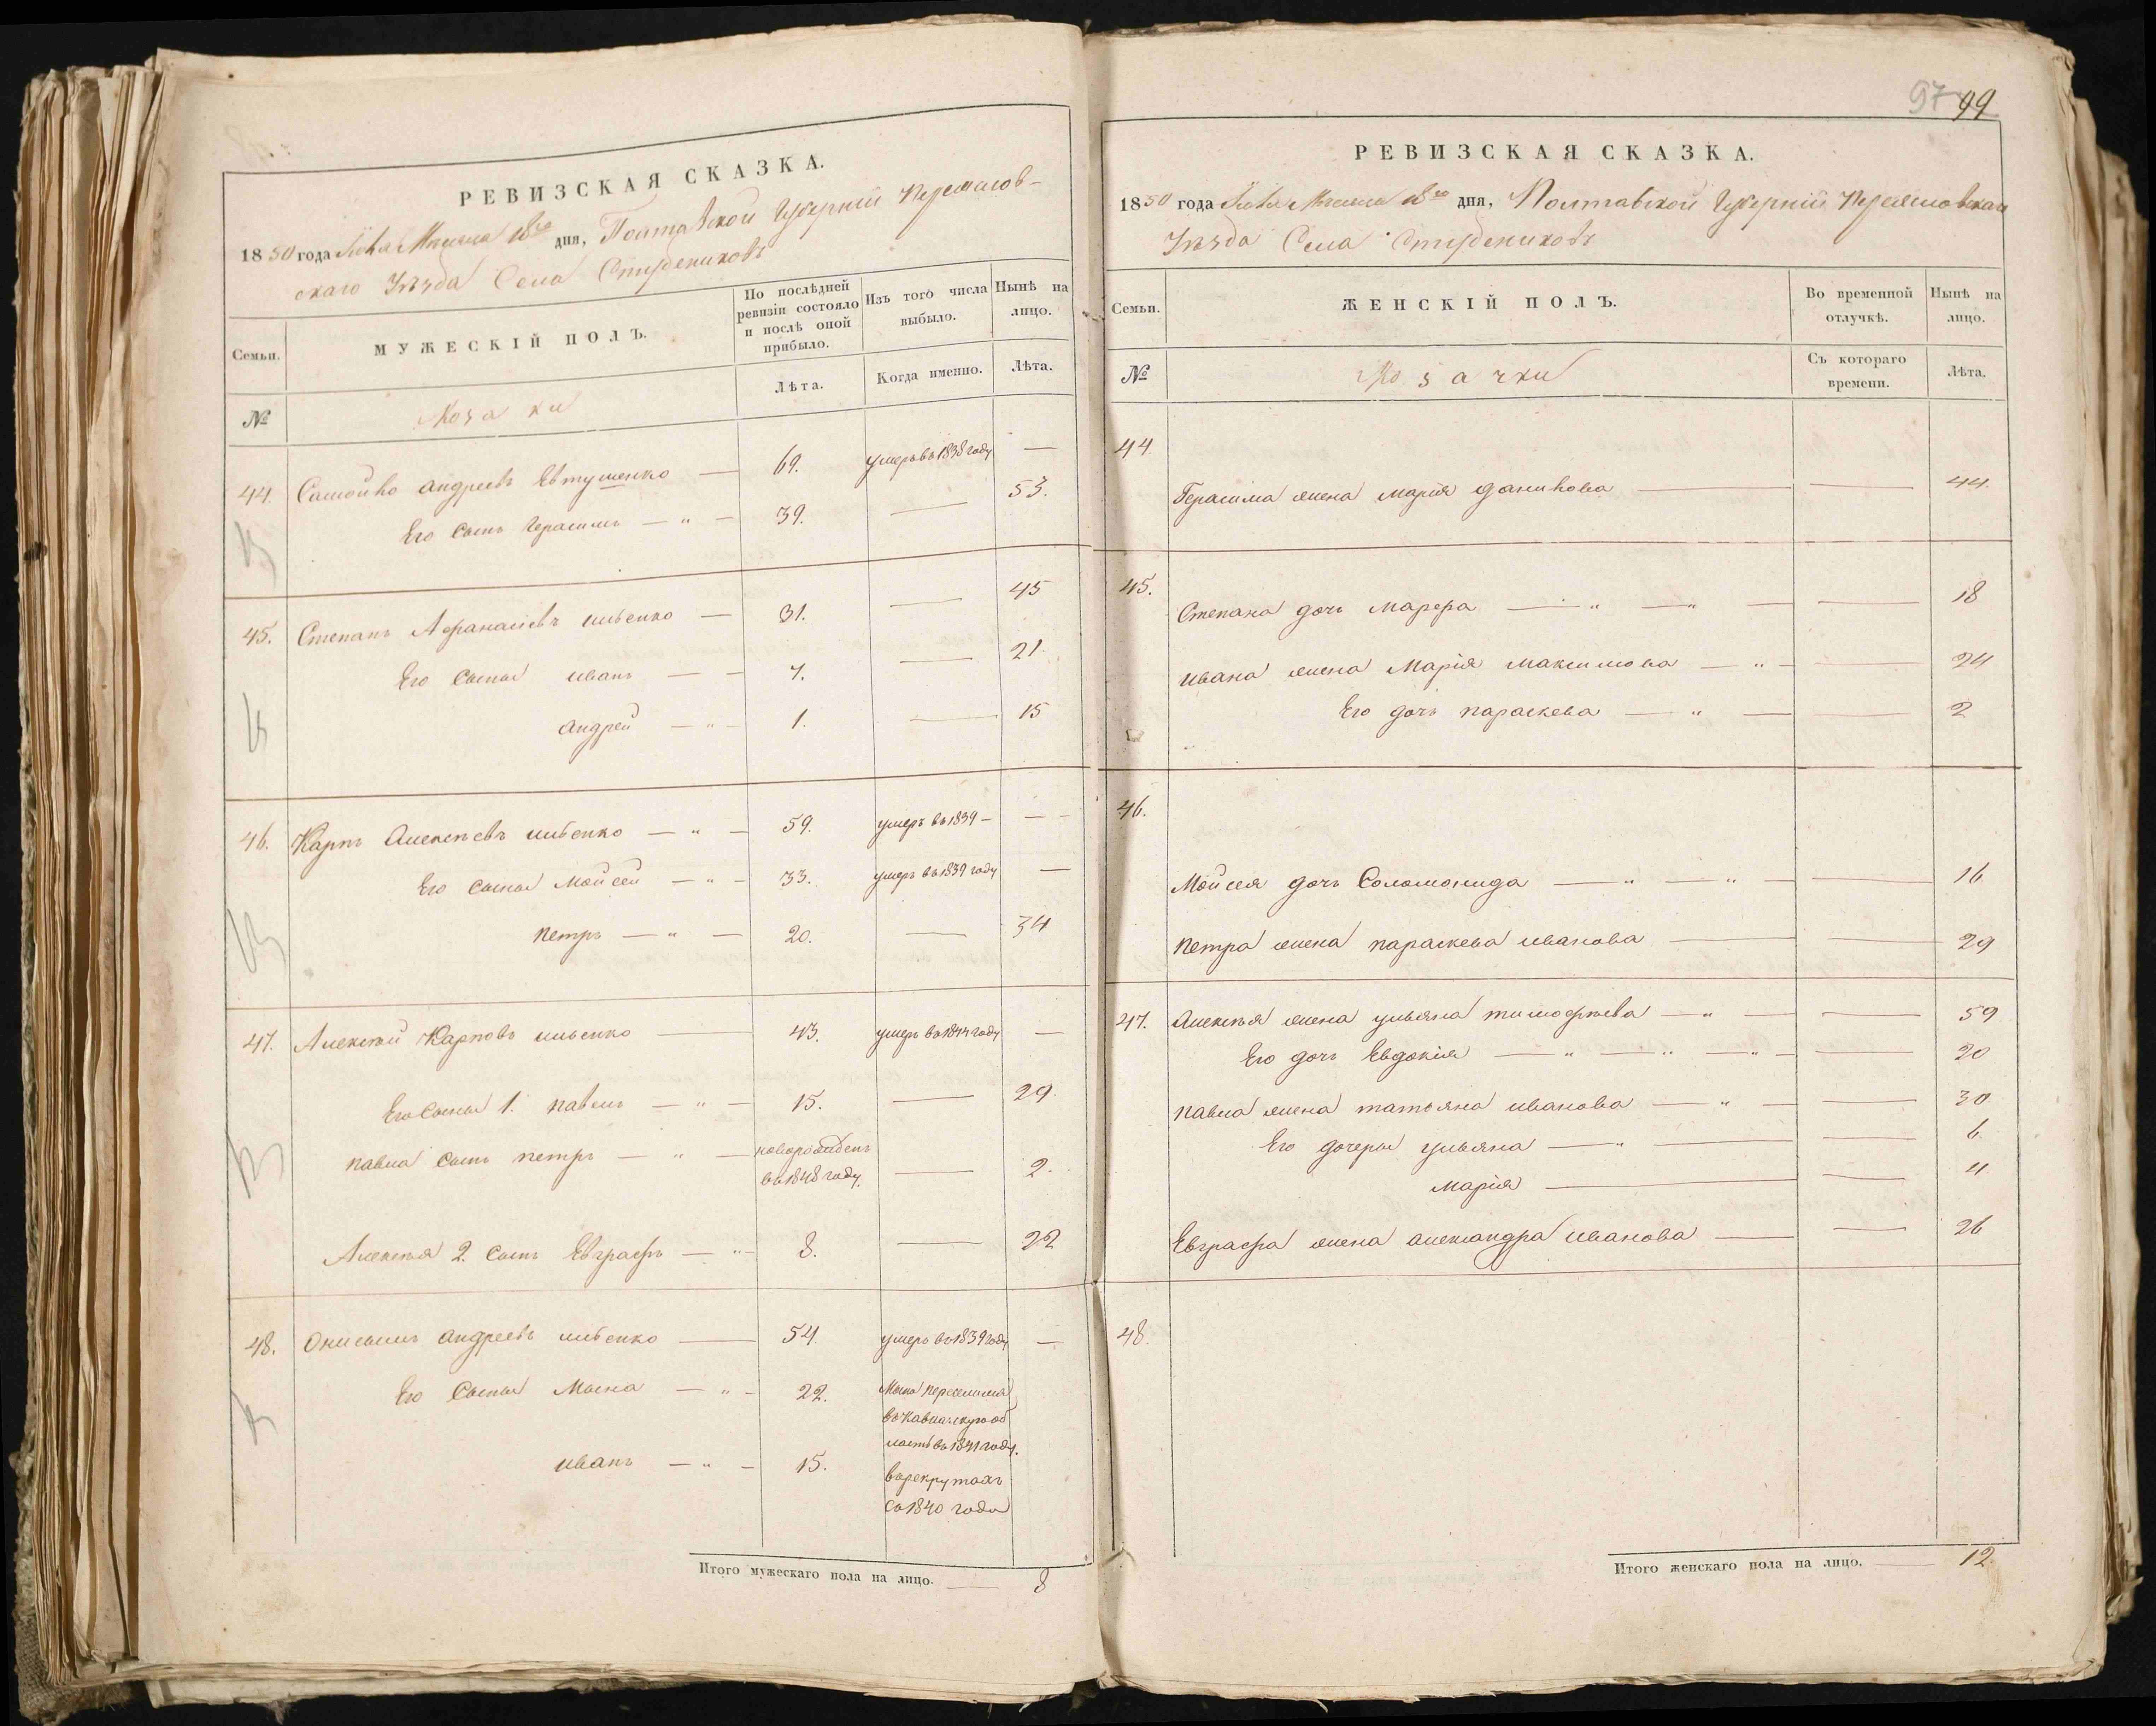 РЕВИЗСКАЯ СКАЗКА.
1850 года Июня Месяца 18го дня, Полтавской Губерніи Переяслов-
скаго Уѣзда Села Студениковъ
Семьи.
МУЖЕСКІЙ ПОЛЪ.
По послѣдней ревизіи состояло и послѣ оной прибыло.
Изъ того числа выбыло.
Нынѣ на лицо.
№
Козаки
Лѣта.
Когда именно.
Лѣта.
44. Самойло андреевъ Евтушенко — 69. умеръ въ 1838 году —
Его сынъ Герасимъ — " — 39. — 53.
45. Степанъ Афанасіевъ ильенко — 31. — 45
Его сыны иванъ — — 7. — 21.
андрей — " — 1. — 15
46. Карпъ Алексѣевъ ильенко — " — 59. умеръ въ 1839 — — —
Его сыны Мойсей — " — 33. умеръ въ 1839 году —
петръ — " — 20. — 34
47. Алексѣй Карповъ ильенко — 43. умеръ въ 1844 году —
Его Сыны 1. павелъ — " — 15. — 29.
павла сынъ петръ — " — новорожденъ
въ 1848 году. — 2.
Алексѣя 2. сынъ Евграфъ — " — 8. — 22
48. Онисимъ андреевъ ильенко — 54. умеръ въ 1839 году —
Его Сыны Мына — " — 22. Мына переселился
въ Кавказскую об
ласть въ 1841 году.
иванъ — " — 15. въ рекрутахъ
съ 1840 года
Итого мужескаго пола на лицо. — 8
97 99
РЕВИЗСКАЯ СКАЗКА.
1850 года Июня Месяца 18го дня, Полтавской Губерніи Переясловскаго
Уѣзда Села Студениковъ
Семьи.
ЖЕНСКІЙ ПОЛЪ.
Во временной отлучкѣ.
Нынѣ на лицо.
№
Козачки
Съ котораго времени.
Лѣта.
44.
Герасима жена марія данилова — — 44.
45.
Степана дочь марфа — " — " — — 18
ивана жена Марія максимова — " — — 24
Его дочь параскева — " — — 2
46.
Мойсея дочь Соломонида — " — " — — 16
петра жена параскева иванова — — 29
47. Алексѣя жена ульяна тимофѣева — " — — 59
Его дочь Евдокія — " — " — " — — 20
павла жена татьяна иванова — " — — 30
Его дочери ульяна — " — — 6
марія — — 4
Евграфа жена александра иванова — — 26
48.
Итого женскаго пола на лицо. — 12.